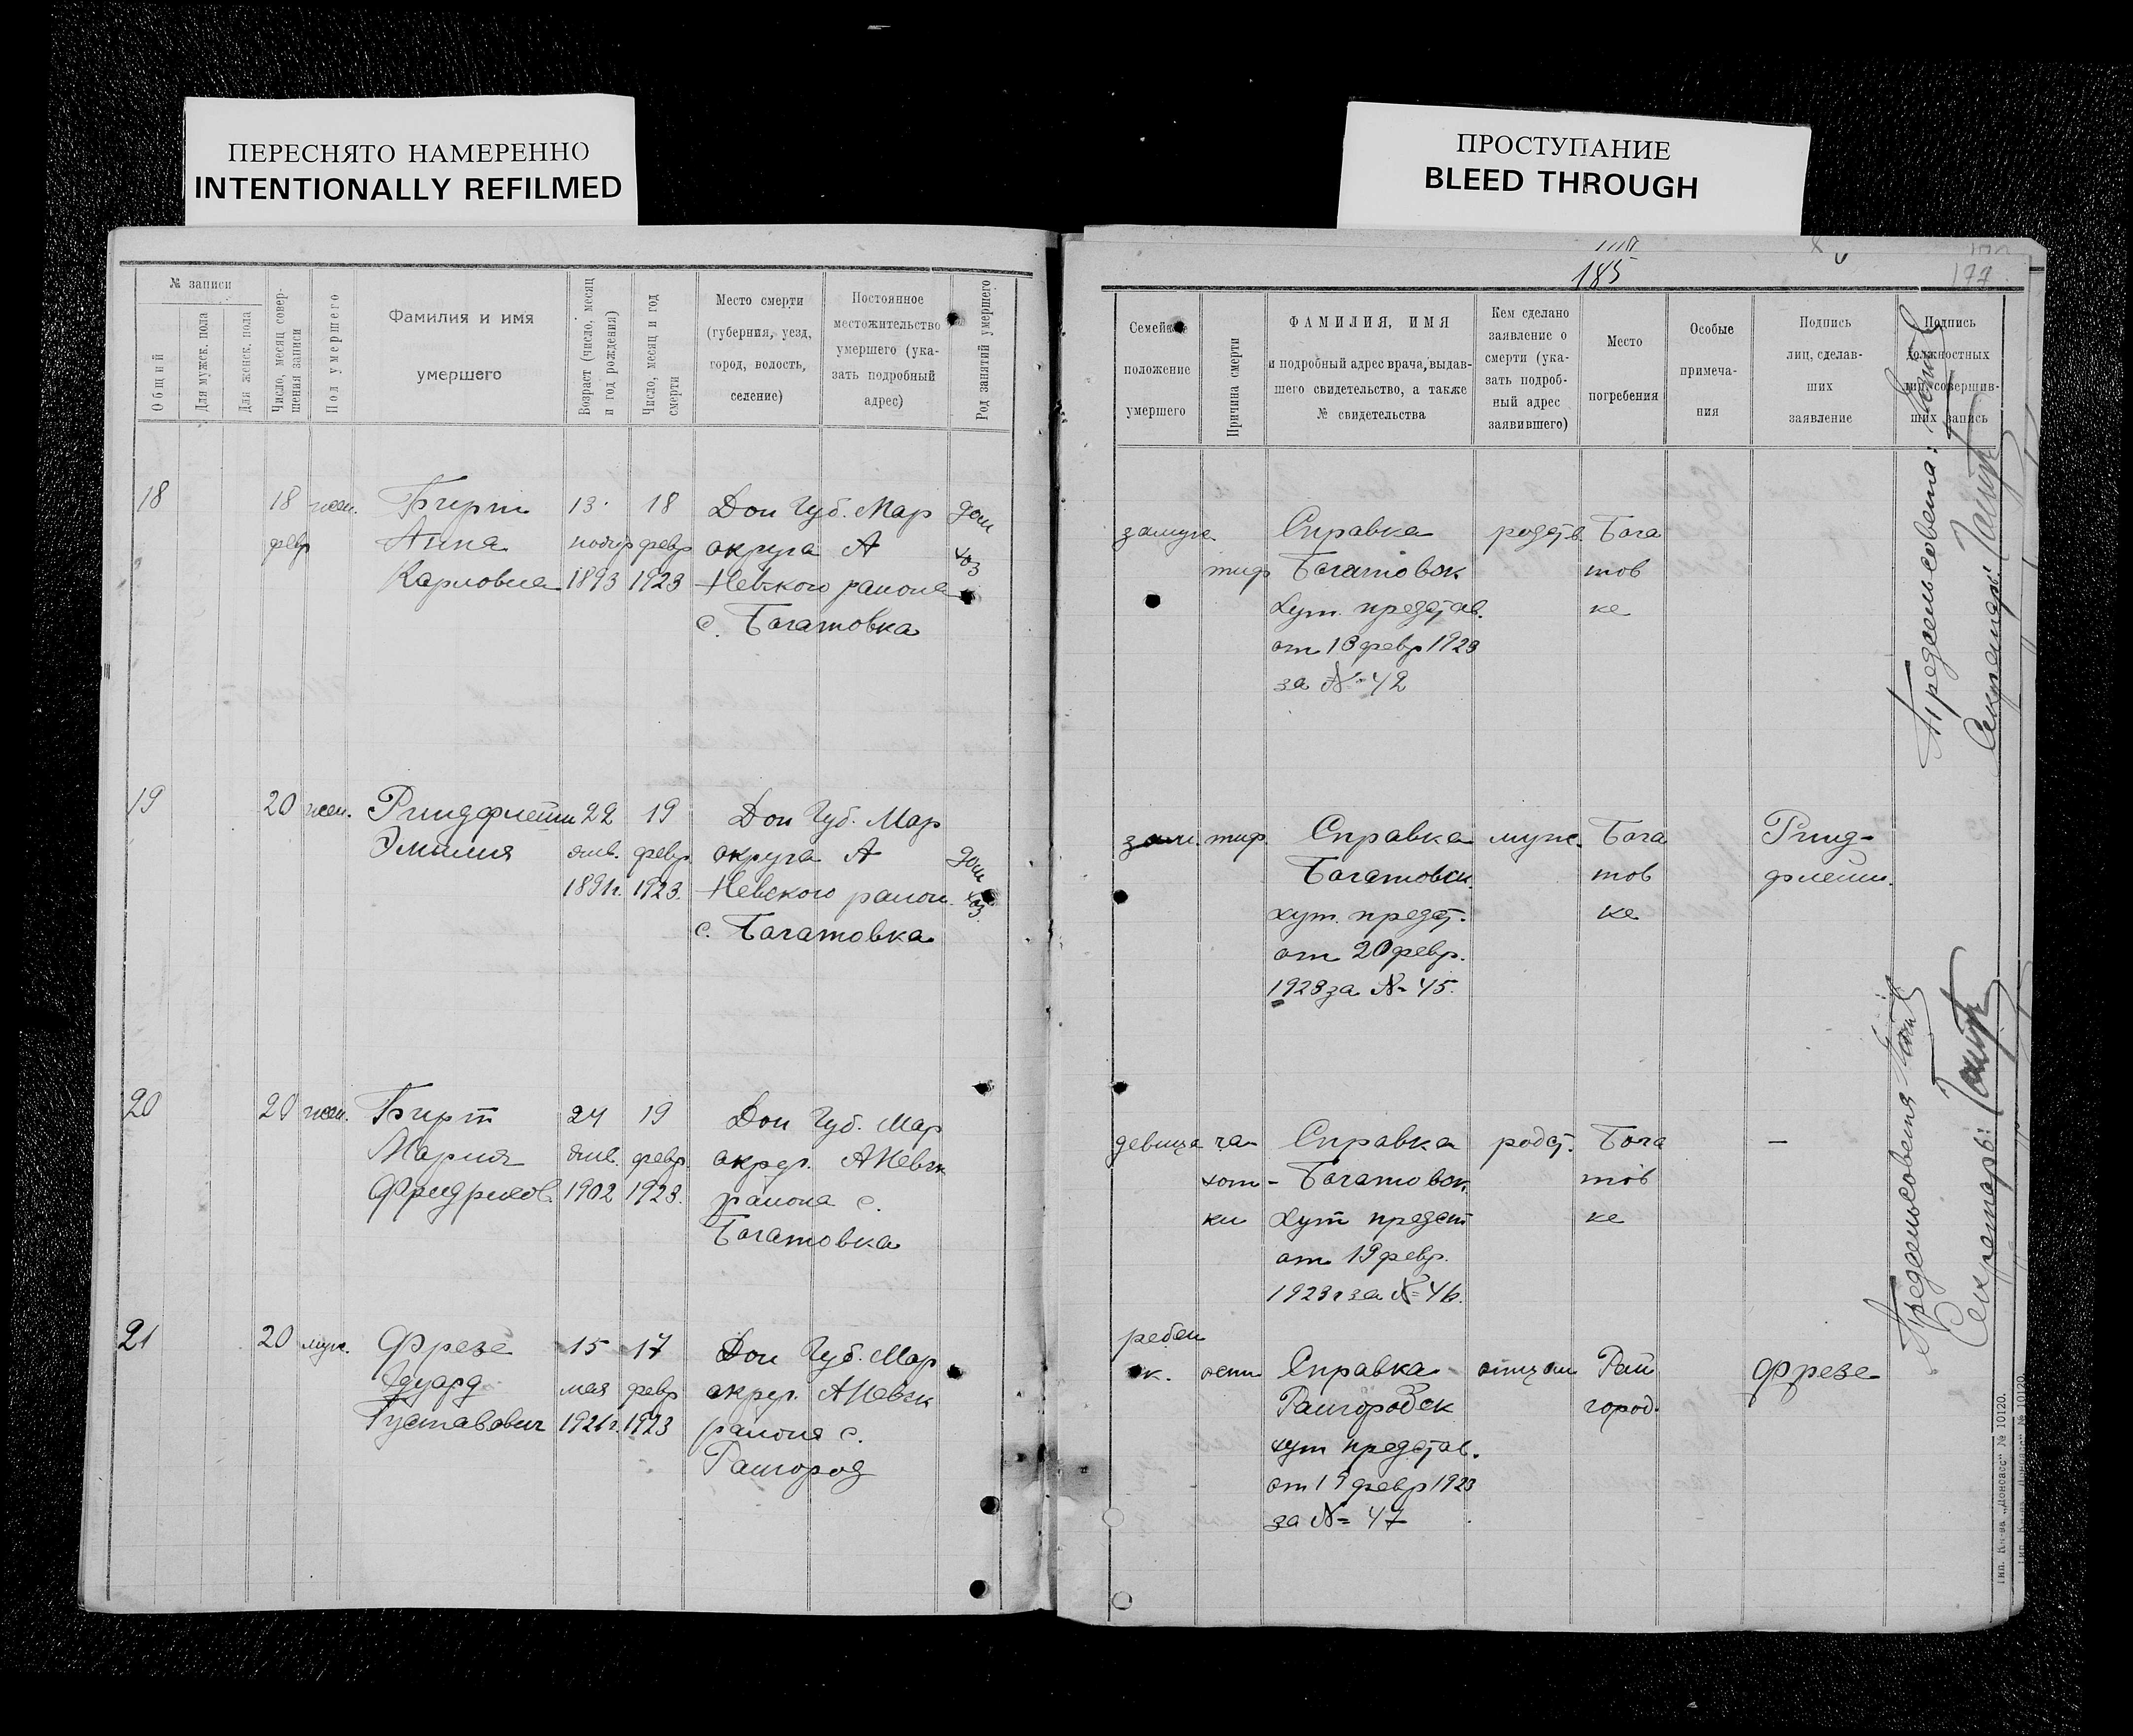 ПЕРЕСНЯТО НАМЕРЕННО
INTENTIONALLY REFILMED
ПРОСТУПАНИЕ
BLEED THROUGH
№ записи
Общий
Для мужск. пола
Для женск. пола
Число, месяц совер-
шения записи
Пол умершего
Фамилия и имя
умершего
Возраст (число, месяц
и год рождения)
Число, месяц и год
смерти
Место смерти
(губерния, уезд,
город, волость,
селение)
Постоянное
местожительство
умершего (ука-
зать подробный
адрес)
Род занятий умершего
18
18 жен.
февр
Бирт
Анна
Карловна
13
1893
18
февр
1923
Дон Губ. Мар
округа А
Невского района
с. Богатовка
дом
хоз
19
20 жен.
Риндфлейш
Эмилия
22
янв.
1891г.
19
февр.
1923.
Дон Губ. Мар
округа А
Невского район.
с. Богатовка
дом
хоз.
20
20 жен.
Бирт
Мария
Фридрихов.
24
янв.
1902
19
февр.
1923.
Дон Губ. Мар
округ. А Невск
района с.
Богатовка
21
20 муж.
Фрезе
Эдуард
Густавович
15
мая
1921г.
17
февр
1923
Дон Губ. Мар
округ. А Невск
района с.
Райгород
185
177
Семейное
положение
умершего
Причина смерти
ФАМИЛИЯ, ИМЯ
и подробный адрес врача, выдав-
шего свидетельство, а также
№ свидетельства
Кем сделано
заявление о
смерти (ука-
зать подроб-
ный адрес
заявившего)
Место
погребения
Особые
примеча-
ния
Подпись
лиц, сделав-
ших
заявление
Подпись
должностных
лиц, совершив-
ших запись
замуж.
тиф
Справка
Богатовск
хут. представ.
от 18 февр 1923
за № 42
родств.
Бога
тов
ке
Предсельсовета:
Секретарь:
зам. тиф.
Справка
Богатовск.
хут. предст.
от 20 февр.
1923 за № 45.
муж.
Бога
тов
ке
Ринд-
флейш.
девица
ча-
хот-
ки
Справка
Богатовск
хут предст
от 19 февр.
1923г за № 46.
родст.
Бога
тов
ке
—
Предсельсовета
Секретарь:
ребен
ок.
осп
Справка
Райгородск
хут представ.
от 19 февр 1923
за № 47
отцом
Рай
город.
Фрезе
Тип. Кн-ва „Донбасс" № 10120.